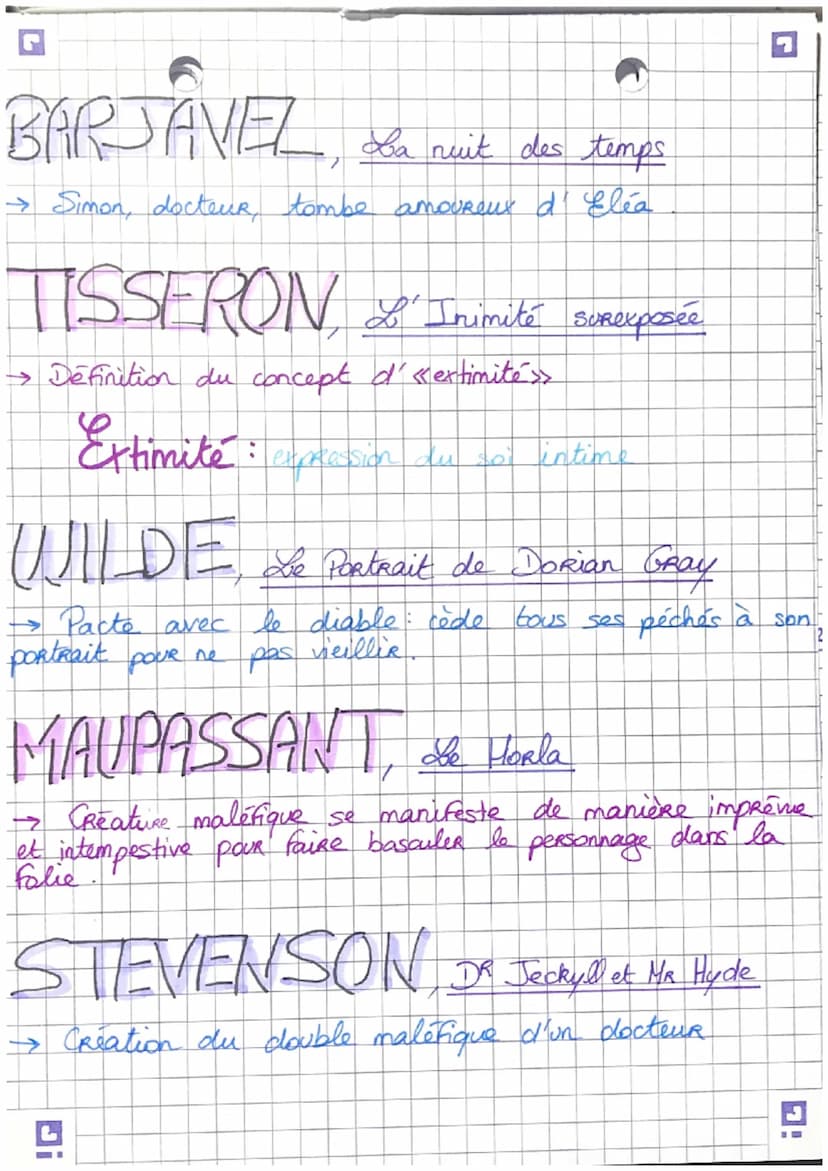 BARJAVEL, La nuit des temps
→ Simon, docteur, tombe amoureux d'Eléa.
TISSERON, L'Inimité surexposée
→ Définition du concept d'«extimité»
Extimité : expression du soi intime
WILDE, Le Portrait de Dorian Gray
→ Pacte avec le diable : cède tous ses péchés à son
portrait pour ne pas vieillir.
MAUPASSANT, Le Horla
→ Créature maléfique se manifeste de manière imprévue
et intempestive pour faire basculer le personnage dans la
folie.
STEVENSON, DR Jeckyll et MR Hyde
→ Création du double maléfique d'un docteur